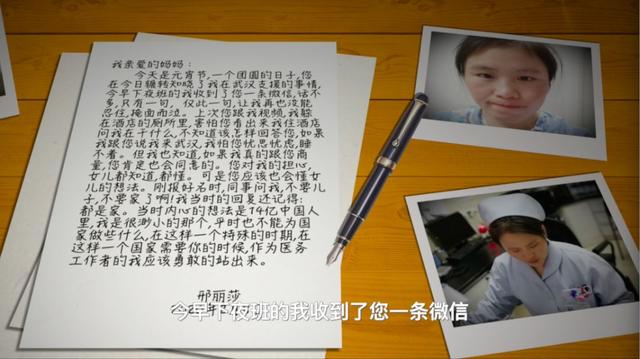 我亲爱的妈妈:
今天是元宵节,一个团圆的日子,您
在今日辗转知晓了我在武汉支援的事情,
今早下夜班的我收到了您一条微信,话不
多,只有一句,仅此一句,让我再也没能
忍住,掩面而泣。上次您跟我视频,我躲
在酒店的厕所里,害怕您看出来我住酒店
问我在干什么,不知道该怎样回答您,如果
我跟您说我来武汉,我怕您忧思忧虑,睡
不着。但我也知道,如果我真的跟您商
量,您肯定也会同意的。您对我的担心,
女儿都知道,都懂。可是您应该也会懂女
儿的想法。刚报好名时,同事问我,不要儿
子,不要家了啊!我当时的回复还记得:
都是家。当时内心的想法是14亿中国人
里,我是很渺小的那个,平时也不能为国
家做些什么,在这样一个特殊的时期,在
这样一个国家需要你的时候,作为医务
工作者的我应该勇敢的站出来。
邢丽莎
今早下夜班的我收到了您一条微信